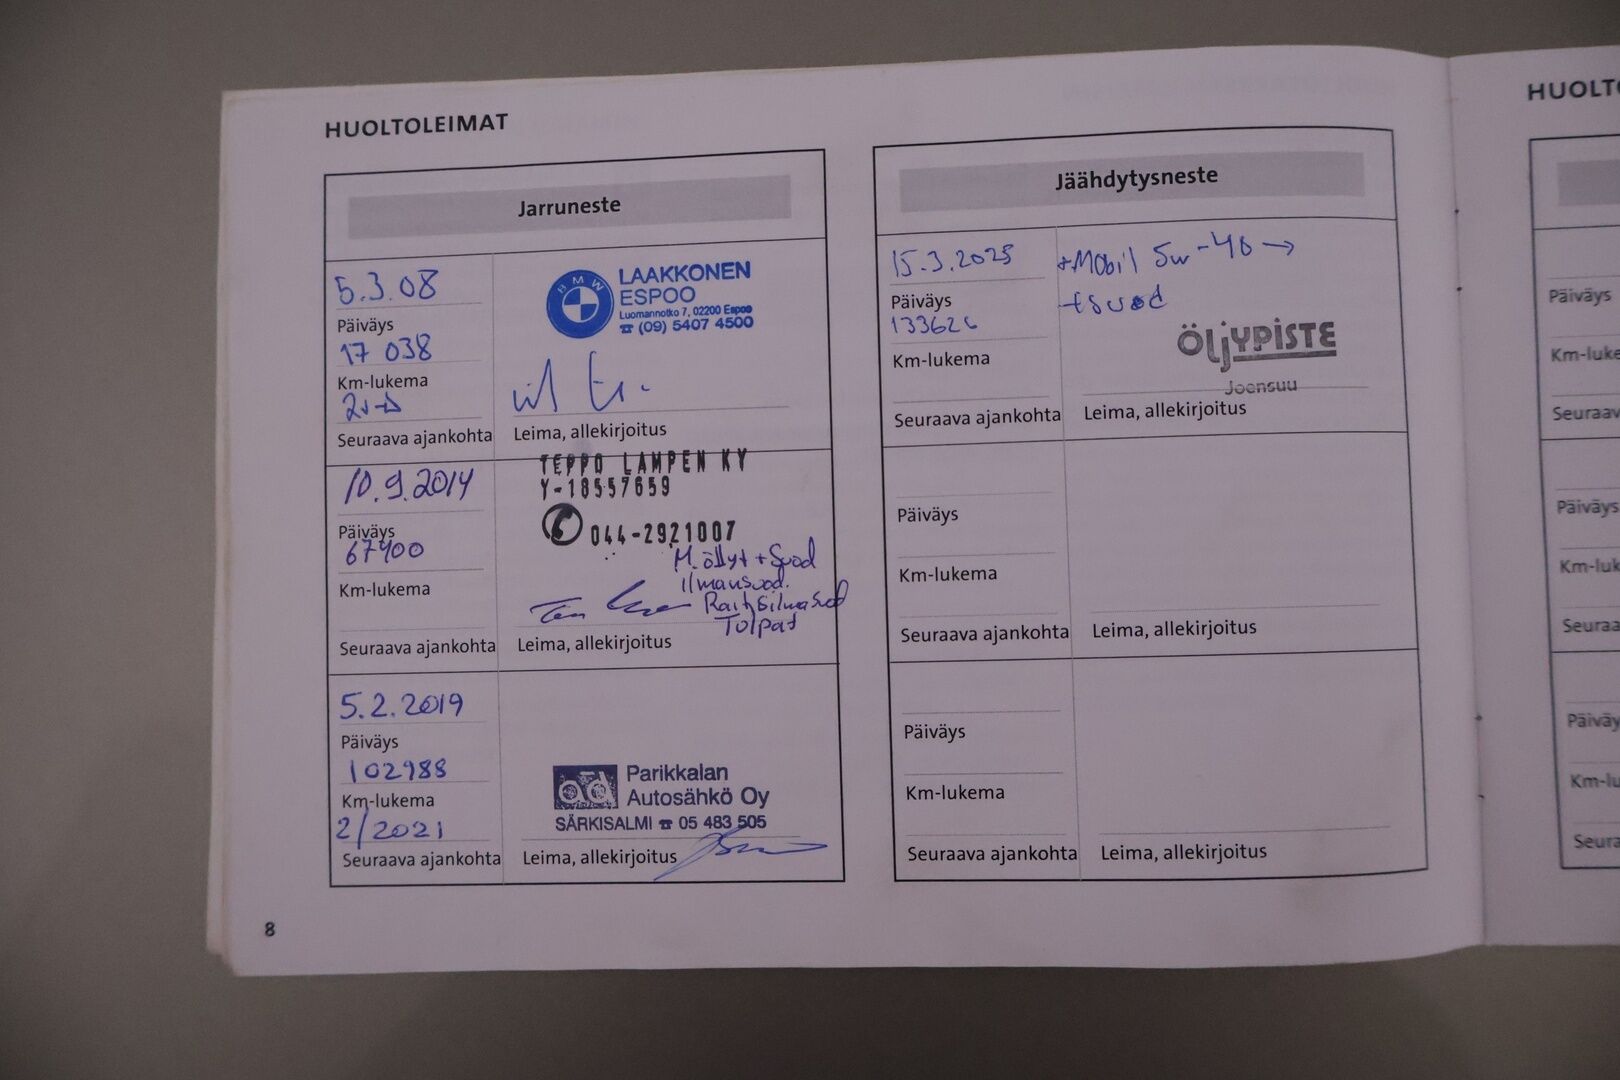 HUOLTOLEIMAT
Jarruneste
5.3.08
Päiväys
17 038
Km-lukema
2v→
Seuraava ajankohta
BMW
LAAKKONEN
ESPOO
Luomannotko 7, 02200 Espoo
☎ (09) 5407 4500
Leima, allekirjoitus
10.9.2014
Päiväys
67400
Km-lukema
Seuraava ajankohta
TEPPO LAMPEN KY
Y-18557659
044-2921007
M.öllyt + Suod
Ilmansuod.
Raitisilmasuod
Tulpat
Leima, allekirjoitus
5.2.2019
Päiväys
102988
Km-lukema
2/2021
Seuraava ajankohta
Parikkalan
Autosähkö Oy
SÄRKISALMI ☎ 05 483 505
Leima, allekirjoitus
8
Jäähdytysneste
15.3.2025
Päiväys
133626
Km-lukema
Seuraava ajankohta
+Mobil 5w-40 →
+suod
ÖljYPISTE
Joensuu
Leima, allekirjoitus
Päiväys
Km-lukema
Seuraava ajankohta
Leima, allekirjoitus
Päiväys
Km-lukema
Seuraava ajankohta
Leima, allekirjoitus
HUOLTO
Päiväys
Km-luke
Seuraav
Päiväys
Km-luk
Seuraa
Päiväy
Km-lu
Seura